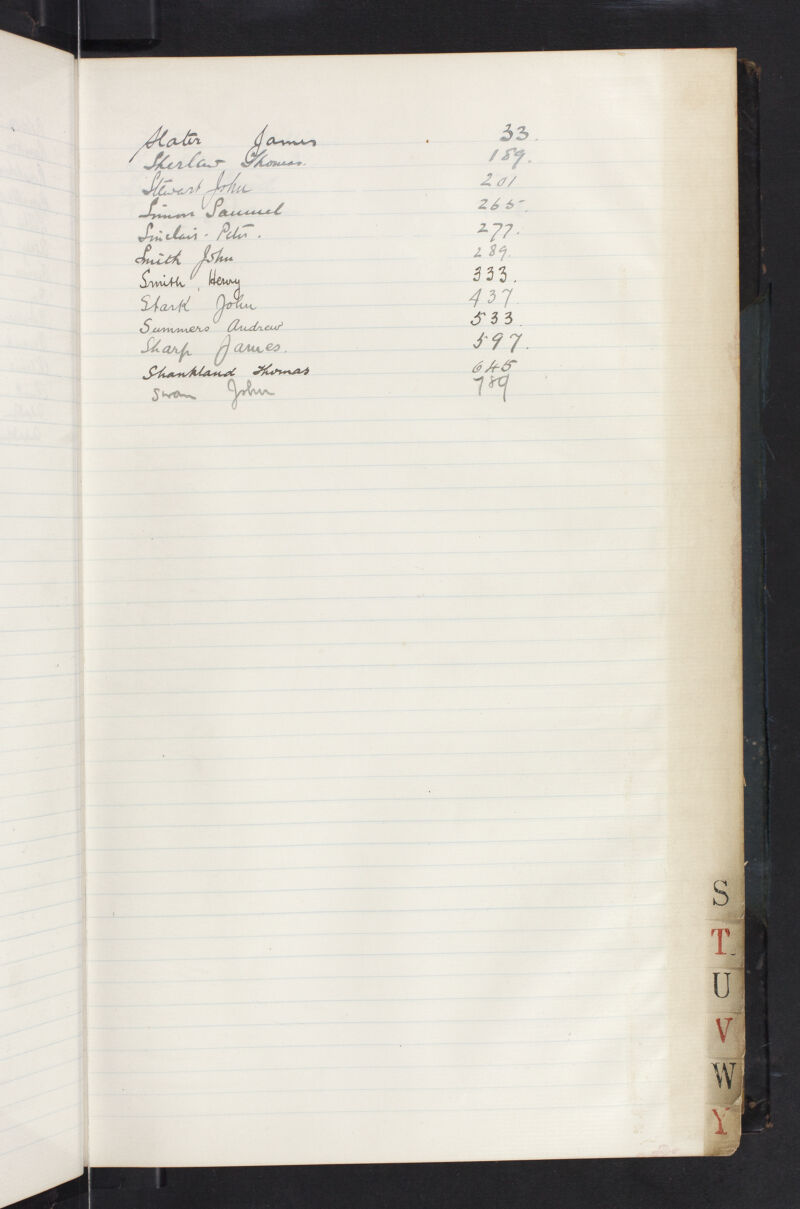 Slater James 33.
Sherlaw Thomas. 189.
Stewart John 201
Simon Samuel 265.
Sinclair - Peter. 277.
Smith John 289.
Smith, Henry 333.
Stark John 437.
Summers Andrew 533.
Sharp James. 597.
Shankland Thomas 645
Swan John 789
S
T
U
V
W
Y